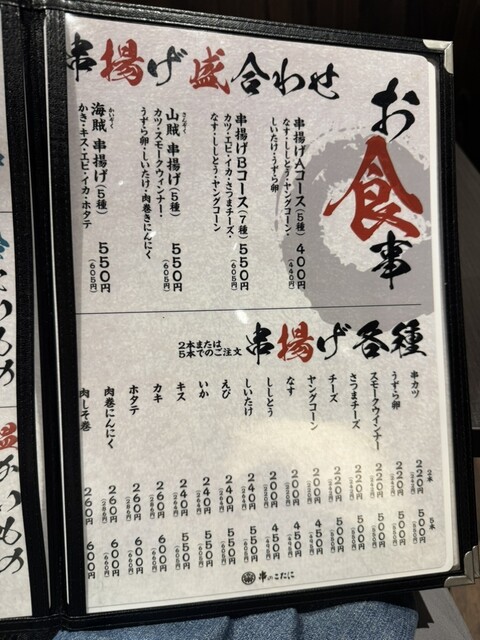 お食事
串揚げ盛合わせ
串揚げAコース(5種) 400円
(440円)
なす・ししとう・ヤングコーン・
しいたけ・うずら卵
串揚げBコース(7種) 550円
(605円)
カツ・エビ・イカ・さつまチーズ・
なす・ししとう・ヤングコーン
さんぞく
山賊 串揚げ(5種) 550円
(605円)
カツ・スモークウィンナー・
うずら卵・しいたけ・肉巻きにんにく
かいぞく
海賊 串揚げ(5種) 550円
(605円)
かき・キス・エビ・イカ・ホタテ
串揚げ各種
2本または
5本でのご注文
2本 5本
串カツ 220円 500円
うずら卵 220円 500円
スモークウィンナー 220円 500円
さつまチーズ 220円 500円
チーズ 220円 500円
ヤングコーン 200円 450円
なす 200円 450円
ししとう 200円 450円
しいたけ 240円 550円
えび 240円 550円
いか 240円 550円
キス 240円 550円
カキ 260円 600円
ホタテ 260円 600円
肉巻にんにく 260円 600円
肉しそ巻 260円 600円
串のこたに